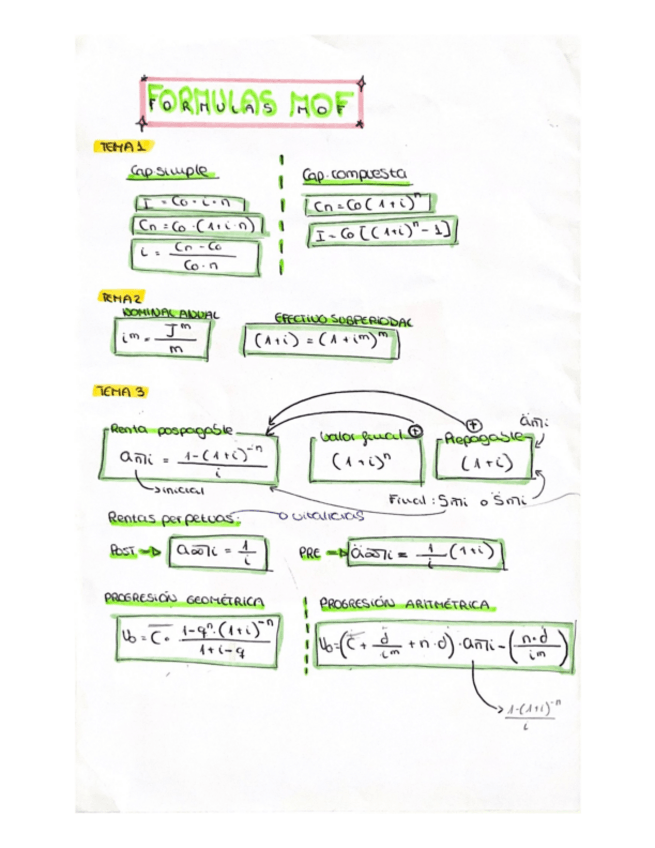 FORMULAS MOF
FORMULAS MOF
TEMA 1
Cap. simple
I = Co · i · n
Cn = Co · (1 + i · n)
i = Cn - Co / Co · n
Cap. compuesta
Cn = Co (1 + i)^n
I = Co [(1 + i)^n - 1]
TEMA 2
NOMINAL ANUAL
im = Jm / m
EFECTIVO SUBPERIODAL
(1 + i) = (1 + im)^m
TEMA 3
Renta pospagable
an̅|i = 1 - (1 + i)^-n / i
inicial
Valor final +
(1 + i)^n
+
Prepagable
än̅|i
(1 + i)
Final: Sn̅|i o S̈n̅|i
Rentas perpetuas: o vitalicias
POST → a∞̅|i = 1 / i
PRE → ä∞̅|i = 1 / i (1 + i)
PROGRESIÓN GEOMÉTRICA
Vo = C · 1 - q^n · (1 + i)^-n / 1 + i - q
PROGRESIÓN ARITMÉTRICA
Vo = (C + d / im + n · d) · an̅|i - (n · d / im)
1 - (1 + i)^-n / i